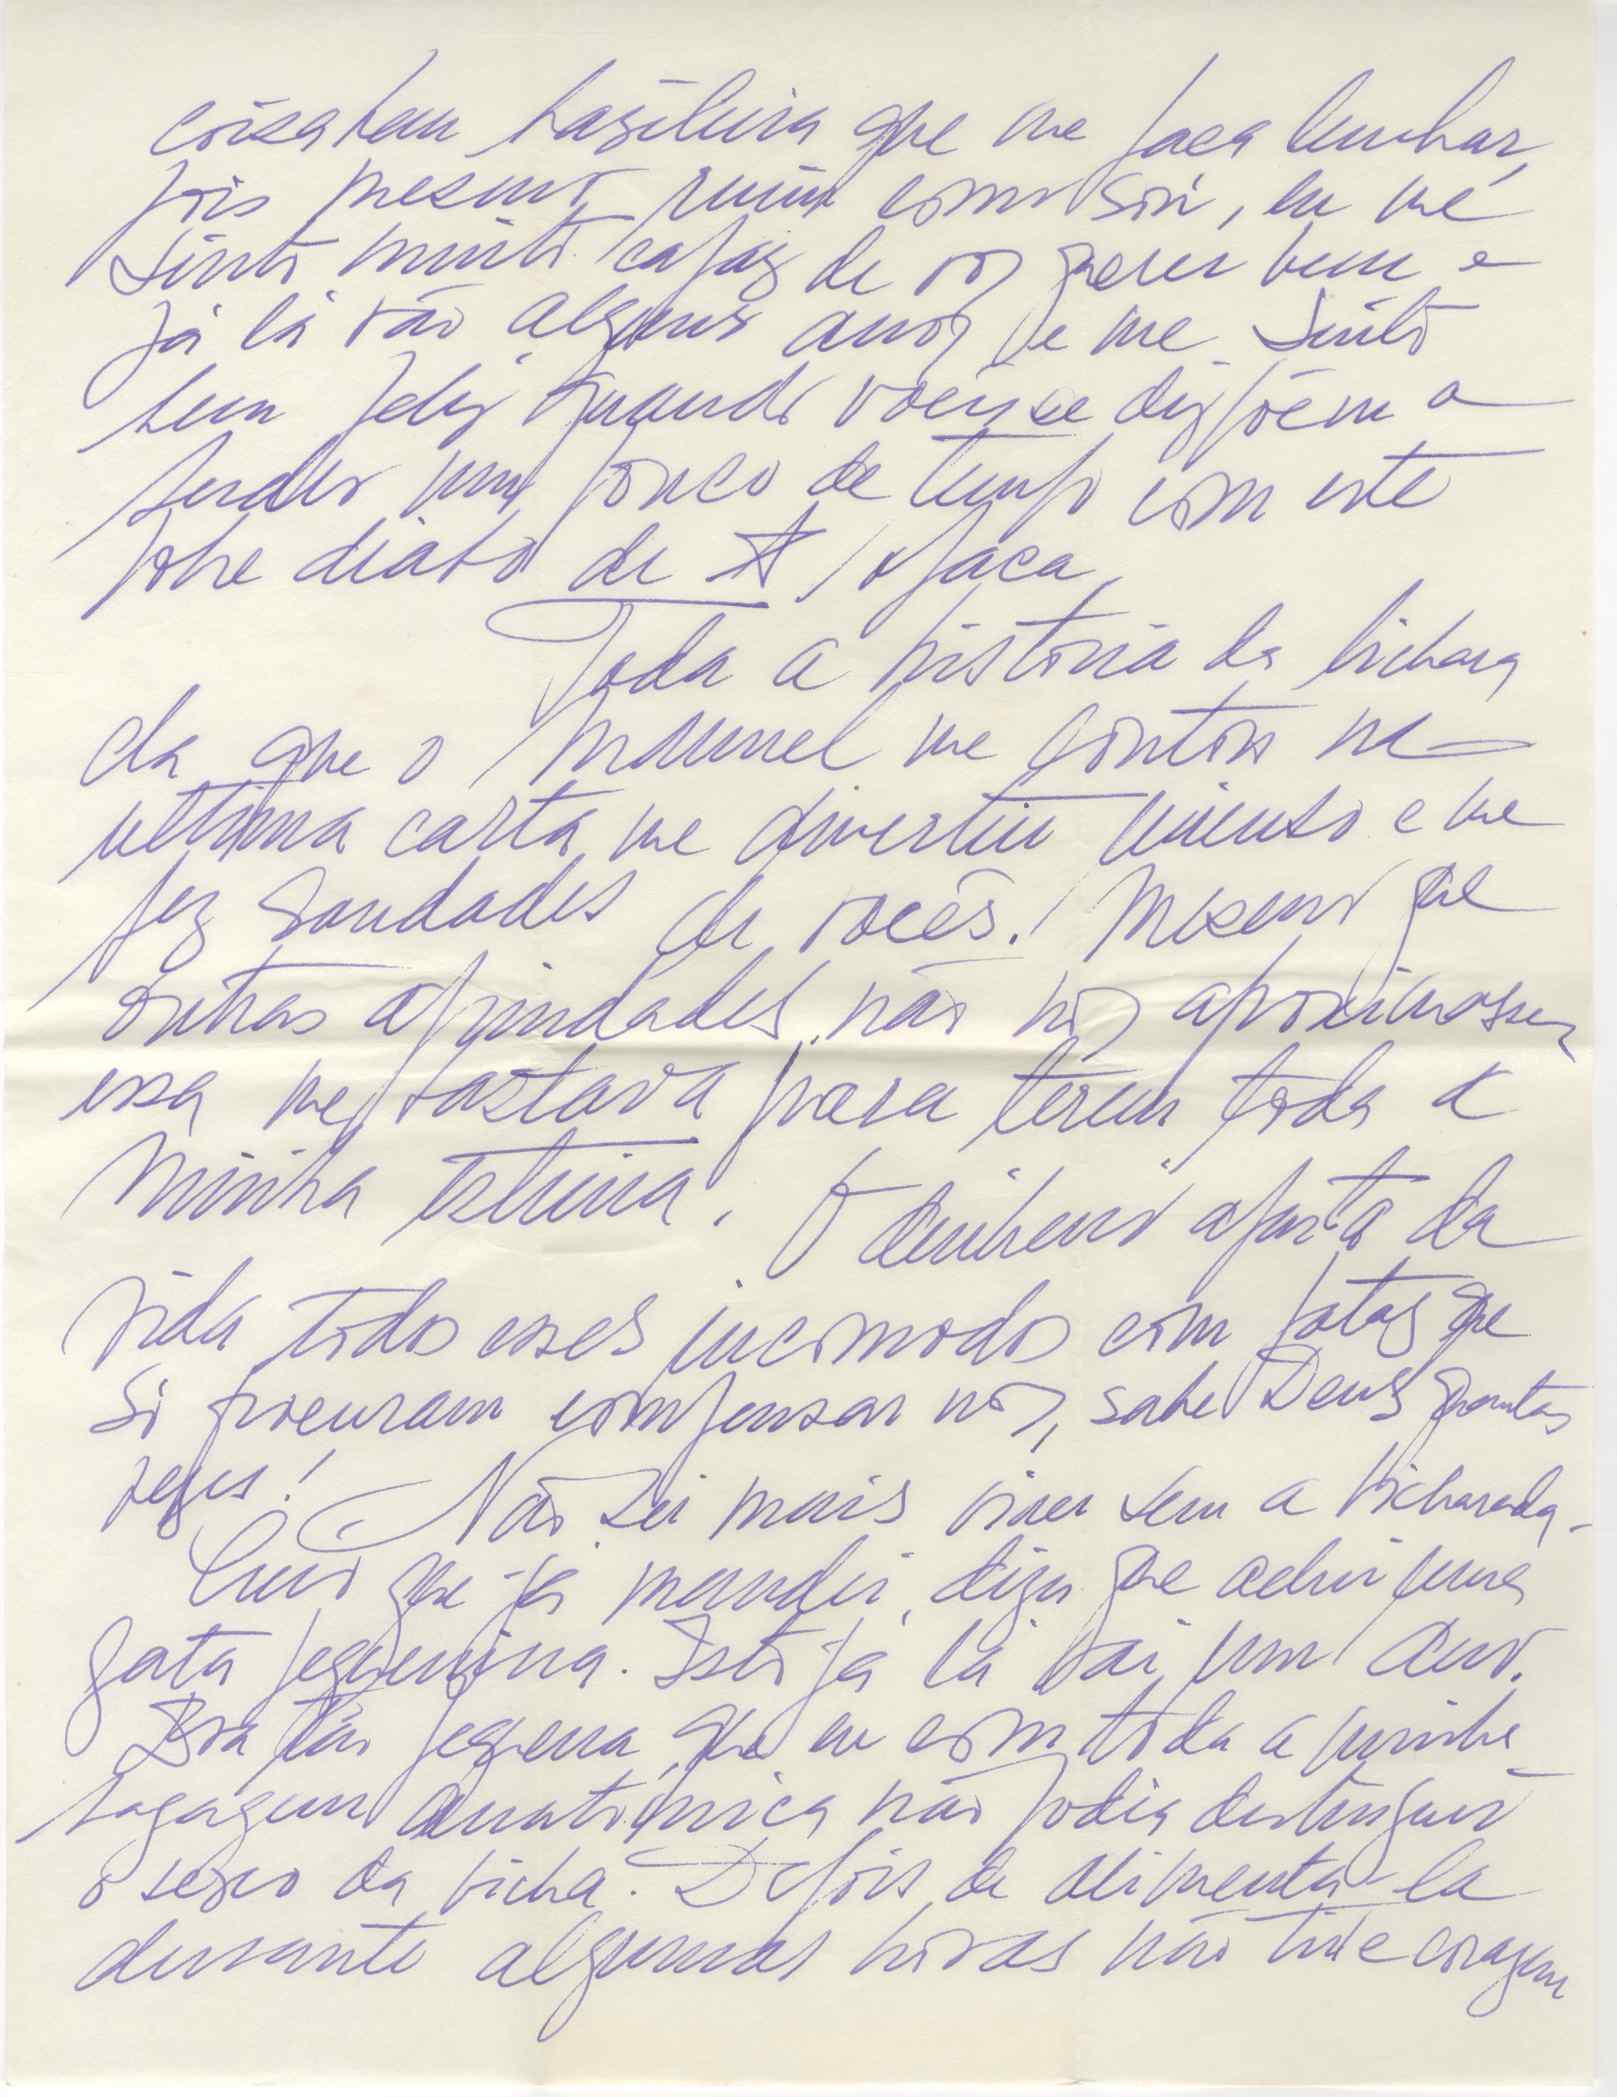 coisa bem brasileira que me faça lembrar,
pois mesmo ruim como sou, eu me
sinto muito capaz de vos querer bem e
já lá vão alguns anos e me sinto
bem feliz quando voces se dispõem a
perder um pouco de tempo com este
pobre diabo de
Toda a historia da bichara
da que o Manuel me contou na
ultima carta me divertiu imenso e me
fez saudades de vocês. Mesmo que
outras afinidades não nos aproximassem
essa me bastava para terem toda a
minha estima. O dinheiro afasta da
vida todos esses incomodos com gatos que
só procuram compensar nos, sabe Deus quantas
vezes! Não sei mais viver sem a bicharada.
Creio que já mandei dizer que achei uma
gata pequenina. Isto já lá vai um ano.
Era tão pequena que eu com toda a minha
bagagem anatómica não podia distinguir
o sexo da bicha. Depois de alimenta-la
durante algumas horas não tive coragem